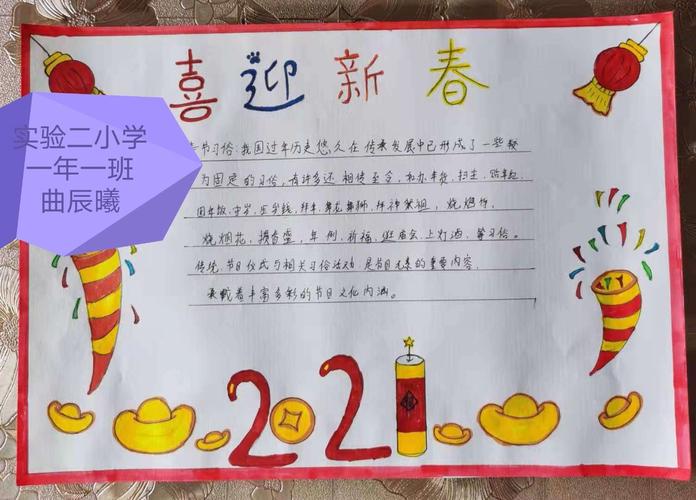 喜迎新春
实验二小学
一年一班
曲辰曦
节习俗:我国过年历史悠久在传承发展中已形成了一些较
为固定的习俗,有许多还相传至今,如办年货,扫尘,贴年红,
团年饭,守岁,压岁钱,拜年,舞龙舞狮,拜神祭祖,烧炮竹,
烧烟花,掼春盛,年例,祈福,逛庙会,上灯酒,等习俗。
传统节日仪式与相关习俗活动,是节日元素的重要内容,
承载着丰富多彩的节日文化内涵。
2021